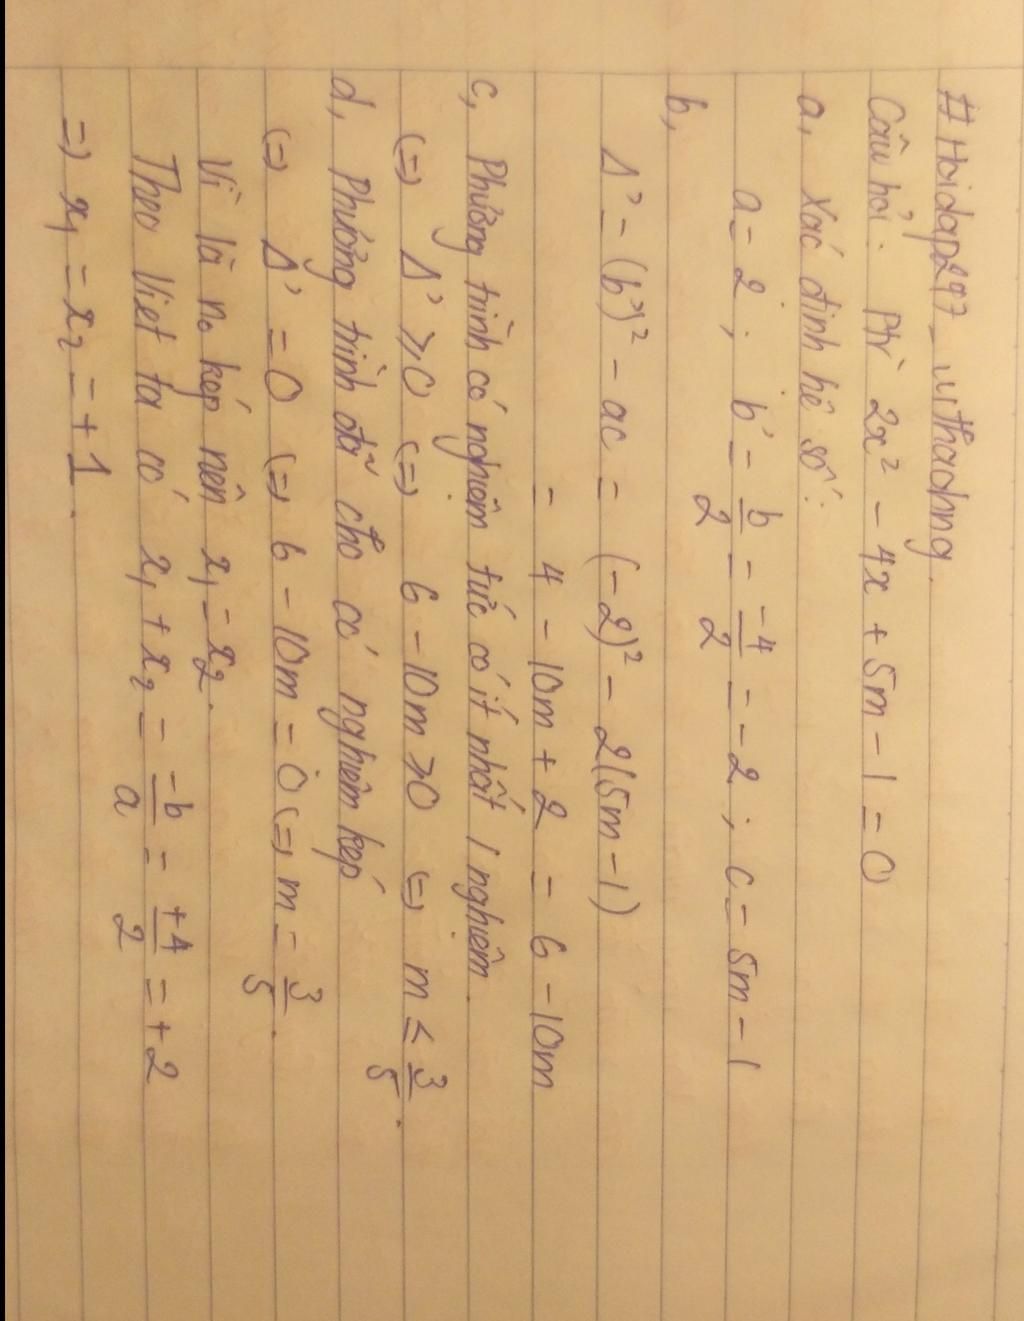 #Hoidap247_withadng.
Câu hỏi. Ptr 2x² - 4x + 5m - 1 = 0
a, Xác định hệ số:
a = 2 ; b' = b/2 = -4/2 = -2 ; c = 5m - 1
b,
Δ' = (b')² - ac = (-2)² - 2(5m - 1)
= 4 - 10m + 2 = 6 - 10m
c, Phương trình có nghiệm tức có ít nhất 1 nghiệm.
(=) Δ' ⩾ 0 (=) 6 - 10m ⩾ 0 (=) m ≤ 3/5.
d, Phương trình đã cho có nghiệm kép
(=) Δ' = 0 (=) 6 - 10m = 0 (=) m = 3/5.
Vì là n₀ kép nên x₁ = x₂.
Theo Viet ta có x₁ + x₂ = -b/a = +4/2 = +2
=) x₁ = x₂ = +1.